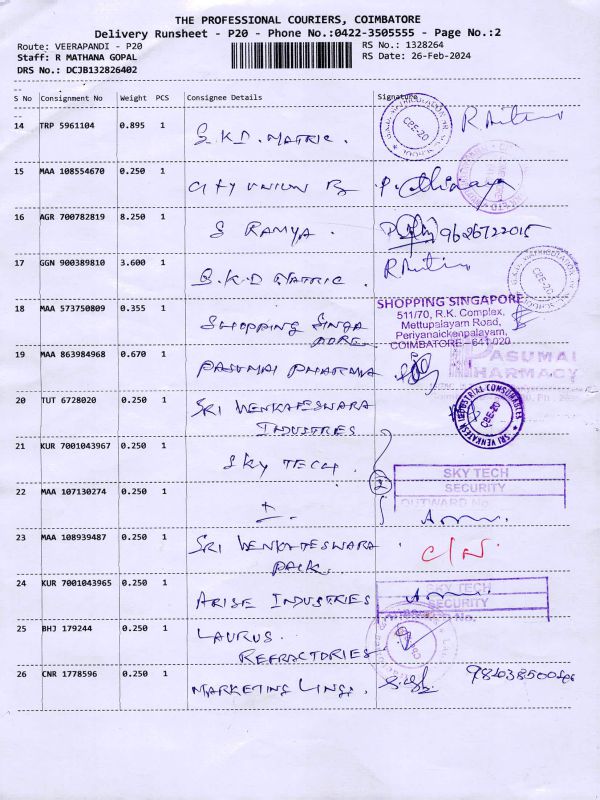 THE PROFESSIONAL COURIERS, COIMBATORE
Delivery Runsheet - P20 - Phone No.:0422-3505555 - Page No.:2
Route: VEERAPANDI - P20
RS No.: 1328264
Staff: R MATHANA GOPAL
RS Date: 26-Feb-2024
DRS No.: DCJB132826402
S No Consignment No Weight PCS Consignee Details Signature
14 TRP 5961104 0.895 1 S.K.D. MATRIC.
CBE-20
15 MAA 108554670 0.250 1 CITY UNION B
16 AGR 700782819 8.250 1 S RAMYA. 9626722015
17 GGN 900389810 3.600 1 S.K.D MATRIC.
CBE-20
18 MAA 573750809 0.355 1 SHOPPING SINGA
PORE
SHOPPING SINGAPORE
511/70, R.K. Complex,
Mettupalayam Road,
Periyanaickenpalayam,
COIMBATORE - 641 020
19 MAA 863984968 0.670 1 PASUMAI PHARMA
PASUMAI
PHARMACY
20 TUT 6728020 0.250 1 SRI VENKATESWARA
INDUSTRIES
SRI VENKATESH INDUSTRIAL CONSUMABLES
CBE-20
21 KUR 7001043967 0.250 1 SKY TECH.
2
SKY TECH
SECURITY
OUTWARD No.
22 MAA 107130274 0.250 1
23 MAA 108939487 0.250 1 SRI VENKATESWARA
PACK.
C/N.
24 KUR 7001043965 0.250 1 ARISE INDUSTRIES
SKY TECH
SECURITY
25 BHJ 179244 0.250 1 LAURUS.
REFRACTORIES
26 CNR 1778596 0.250 1 MARKETING LINGS.